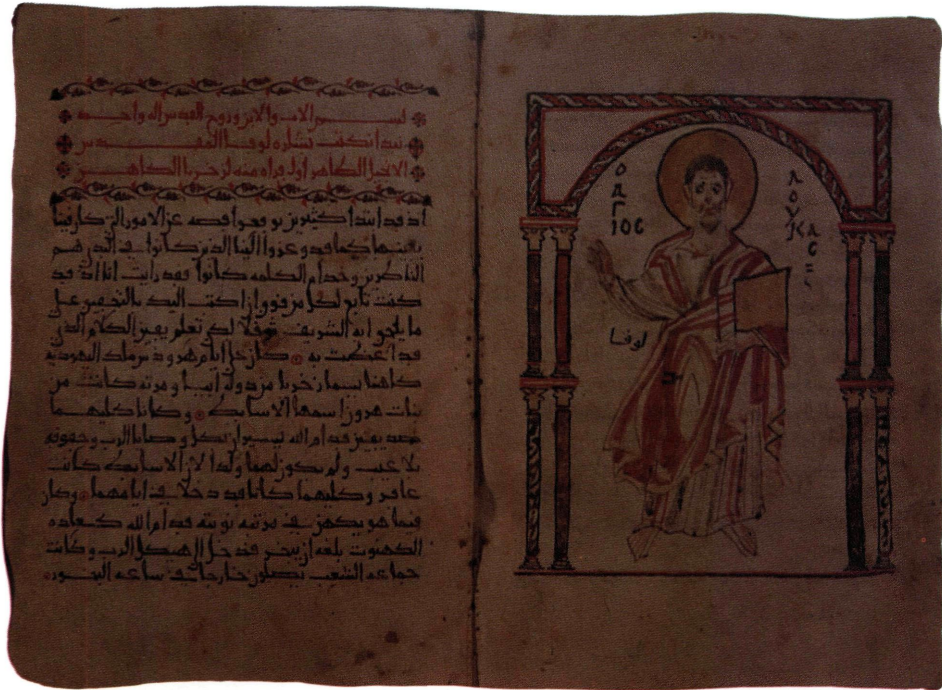 بسم الاب والابن وروح القدس اله واحد
نبدا نكتب بشاره لوقا المقدس
الانجيل الطاهر اول قراه منه لزخريا الكاهن
اذ قد ابتدا كثيرين قصه عن الامور التي كان فينا
يقينها كما قد وعزوا الينا الذين كانوا في القدم هم
الناظرين وخدام الكلمه كانوا فقد رايت انا اذ قد
كنت تابع لكل من فوق ان اكتب اليك بالتحقيق على
ما ايه الشريف ثوفلا لكي تعلم يقين الكلام الذي
قد به كان في ايام هرودس ملك اليهوديه
كاهنا يسما زخريا من دوله ابيا ومرته كانت من
بنات هرون اسمها وكانا كليهما
صديقين قدام الله يسيران بكل وصايا الرب وحقوقه
بلا عيب ولم يكون لهما ولدا لان كانت
عاقر وكليهما كانا قد دخلا في ايامهما وكان
فيما هو يكهن في مرتبه نوبته قدام الله كعاده
الكهنوت بلغه ان يبخر فدخل الى هيكل الرب وكانت
جماعه الشعب يصلون خارجا في ساعه البخور
Ο
ΑΓ
ΙΟC
ΛΟΥΚΑC
لوقا